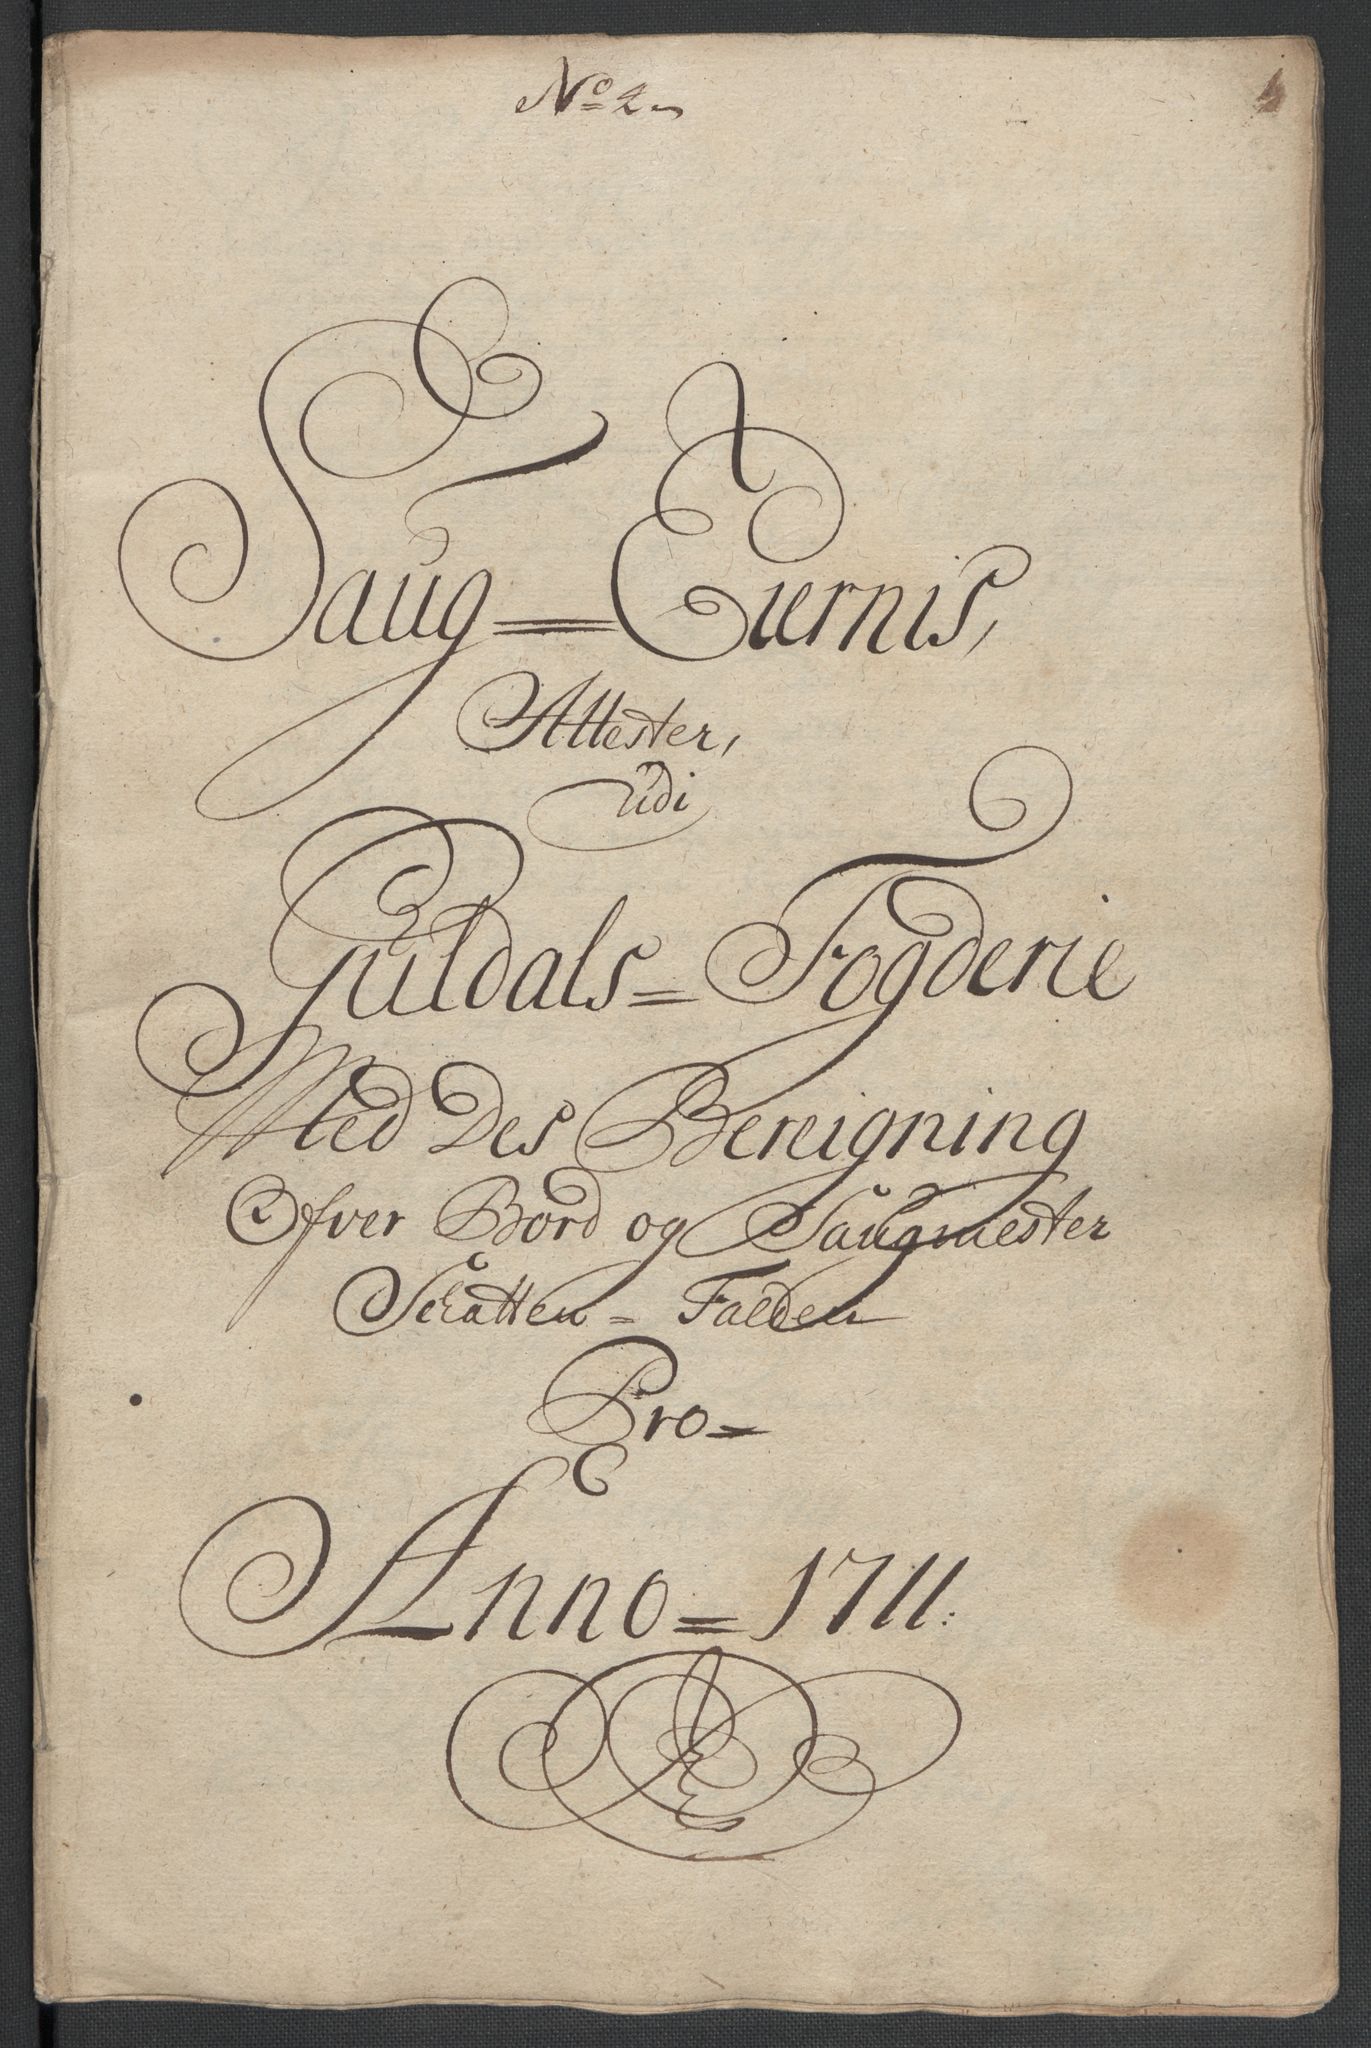 No 2
Saug = Eiernis,
Attester,
udi
Guldals = Fogderie
Med Des Bereigning
Ofver Bord og Saugmester
Schatten = Falden
Pro =
Anno = 1711.